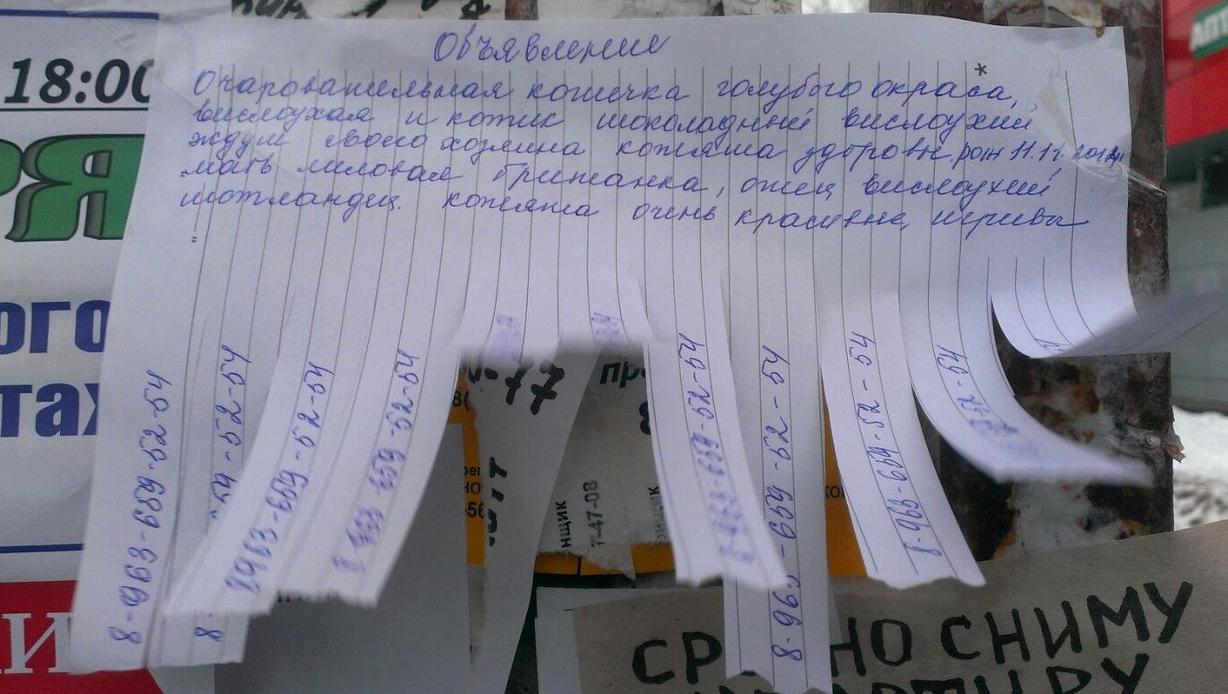 18:00
РЯ
ого
тах
И
Объявление
Очаровательная кошечка голубого окраса,
вислоухая и котик шоколадный вислоухий
ждут своего хозяина котята здоровы, рож 11.11.
мать лиловая британка, отец вислоухий
шотландец. котята очень красивые, игривы
8-963-659-52-54
8-
59-52-54
8963-659-52-54
659-52-54
8-963-659-52-54
8-963-659-52-54
52-54
-77
пр
нщик
7-47-08
СР НО СНИМУ